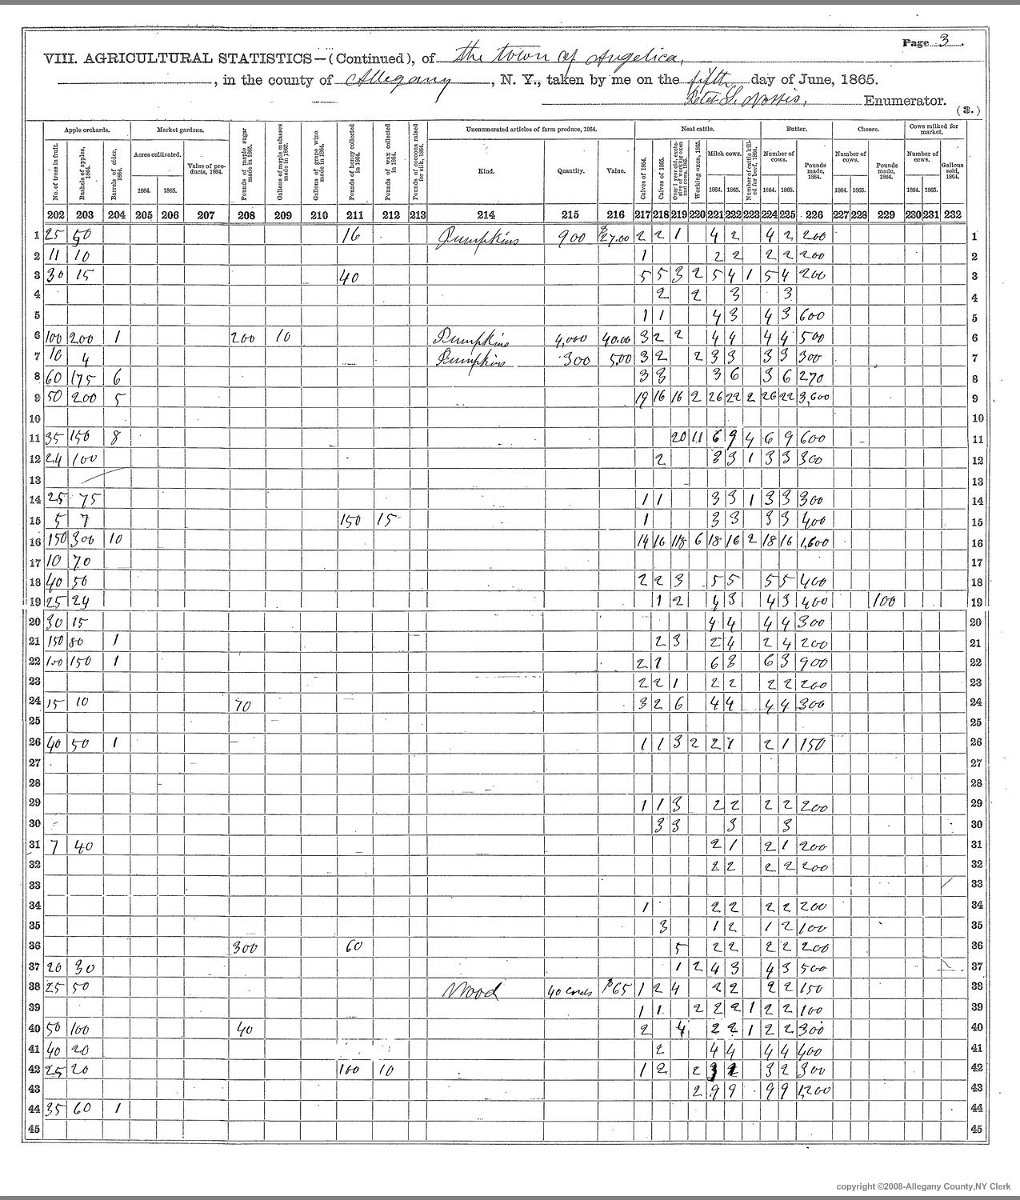 Page 3.
VIII. AGRICULTURAL STATISTICS—(Continued), of the town of Angelica,
, in the county of Allegany, N. Y., taken by me on the fifth day of June, 1865.
Peter S. Norris, Enumerator.
(3.)
Apple orchards. Market gardens. Unenumerated articles of farm produce, 1864. Neat cattle. Butter. Cheese. Cows milked for market.
No. of trees in fruit. Bushels of apples, 1864. Barrels of cider, 1864. Acres cultivated. 1864. 1865. Value of products, 1864. Pounds of maple sugar made in 1865. Gallons of maple molasses made in 1865. Gallons of grape wine made in 1864. Pounds of honey collected in 1864. Pounds of wax collected in 1864. Pounds of cocoons raised for silk, 1864. Kind. Quantity. Value. Calves of 1864. Calves of 1865. Working oxen, 1865. Milch cows. 1864. 1865. Number of cows. 1864. 1865. Pounds made, 1864. Number of cows. 1864. 1865. Pounds made, 1864. Number of cows. 1864. 1865. Gallons sold, 1864.
202 203 204 205 206 207 208 209 210 211 212 213 214 215 216 217 218 219 220 221 222 223 224 225 226 227 228 229 230 231 232
1 25 50 16 Pumpkins 900 $27.00 2 2 1 4 2 4 2 200 1
2 11 10 1 2 2 2 2 200 2
3 30 15 40 5 5 3 2 5 4 1 5 4 200 3
4 2 2 3 3 4
5 1 1 4 3 4 3 600 5
6 100 200 1 200 10 Pumpkins 4,000 40.00 3 2 2 4 4 4 4 500 6
7 10 4 Pumpkins 300 500 3 2 2 3 3 3 3 300 7
8 60 175 6 3 3 3 6 3 6 270 8
9 50 200 5 19 16 16 2 26 22 2 26 22 3,600 9
10 10
11 35 150 8 20 11 6 9 4 6 9 600 11
12 24 100 2 3 3 1 3 3 300 12
13 13
14 25 75 1 1 3 3 1 3 3 300 14
15 5 7 150 15 1 3 3 3 3 400 15
16 150 300 10 14 16 118 6 18 16 2 18 16 1,600 16
17 10 70 17
18 40 50 2 2 3 5 5 5 5 400 18
19 25 24 1 2 4 3 4 3 400 100 19
20 30 15 4 4 4 4 300 20
21 150 80 1 2 3 2 4 2 4 200 21
22 100 150 1 2 1 6 3 6 3 900 22
23 2 2 1 2 2 2 2 200 23
24 15 10 70 3 2 6 4 4 4 4 300 24
25 25
26 40 50 1 1 1 3 2 2 1 2 1 150 26
27 27
28 28
29 1 1 3 2 2 2 2 200 29
30 3 3 3 3 30
31 7 40 2 1 2 1 200 31
32 2 2 2 2 200 32
33 33
34 1 2 2 2 2 200 34
35 3 1 2 1 2 100 35
36 300 60 5 2 2 2 2 200 36
37 20 30 1 2 4 3 4 3 500 37
38 25 50 Wood 40 cords $65 1 2 4 2 2 2 2 150 38
39 1 1 2 2 2 1 2 2 100 39
40 50 100 40 2 4 2 2 1 2 2 300 40
41 40 20 2 4 4 4 4 400 41
42 25 20 100 10 1 2 2 3 2 3 2 300 42
43 2 9 9 9 9 1,200 43
44 35 60 1 44
45 45
copyright ©2008-Allegany County,NY Clerk